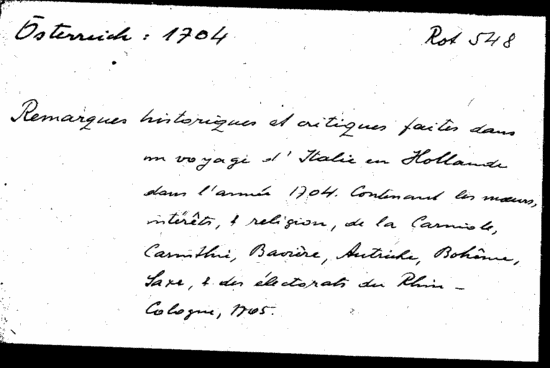 Österreich : 1704 Rot 548
Remarques historiques et critiques faites dans
un voyage d'Italie en Hollande
dans l'année 1704. Contenant les mœurs,
intérêts, & religion, de la Carniole,
Carinthie, Bavière, Autriche, Bohême,
Saxe, & des électorats du Rhin –
Cologne, 1705.